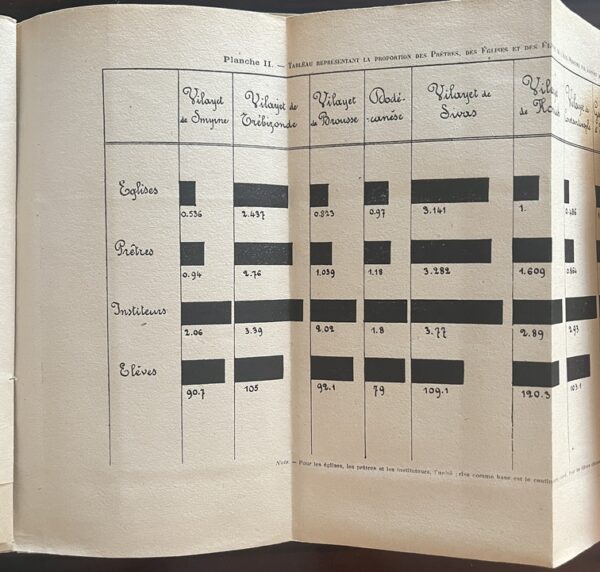 Planche II. — Tableau représentant la proportion des Prêtres, des Églises et des
Vilayet de Smyrne
Vilayet de Trébizonde
Vilayet de Brousse
Dodé-canèse
Vilayet de Sivas
de
Eglises
0.536 2.437 0.823 0.97 3.141 1.
Prêtres
0.94 2.76 1.039 1.18 3.282 1.609
Instituteurs
2.06 3.39 2.02 1.8 3.77 2.89 2.93
Elèves
90.7 105 92.1 79 109.1 120.3 103.1
Note. — Pour les églises, les prêtres et les instituteurs, l'unité prise comme base est le